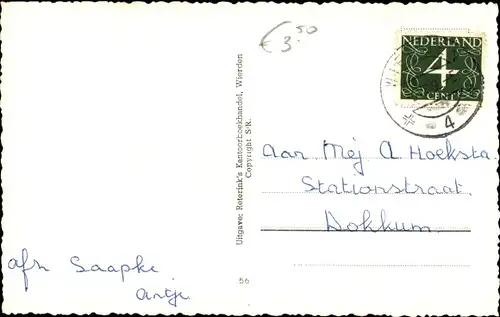 € 3.50
NEDERLAND
4
CENT
4
Aan Mej A Hoekstra
Stationstraat.
Dokkum.
Uitgave: Reterink's Kantoorboekhandel, Wierden
Copyright S.R.
afz Saapke
Antje
56